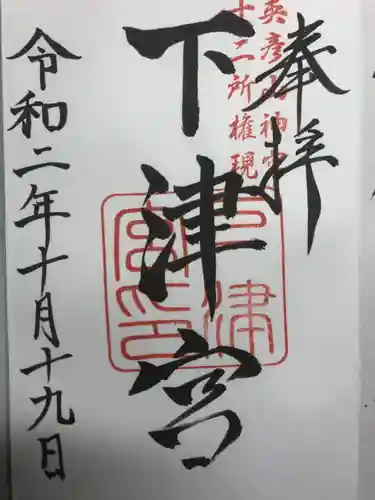 奉拝
英彦山神宮
十二所権現
下津宮
下津宮印
令和二年十月十九日